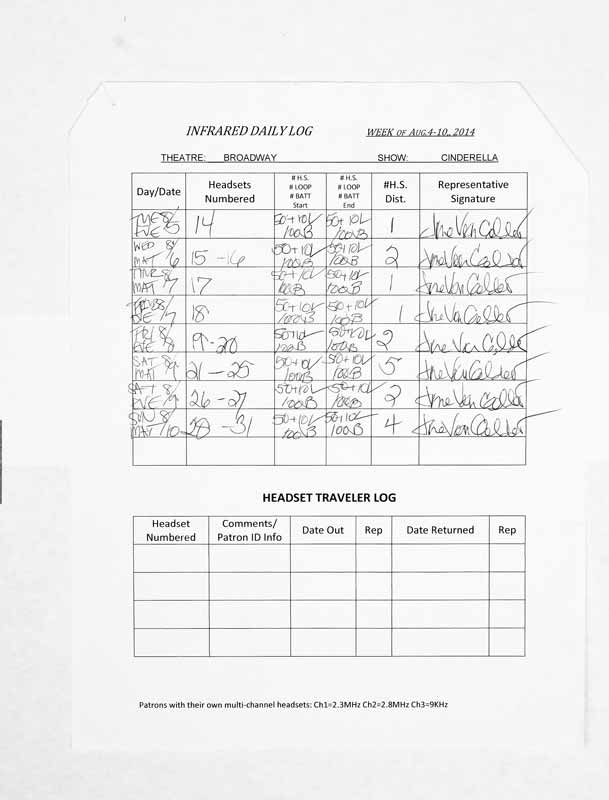 INFRARED DAILY LOG WEEK OF AUG.4-10, 2014
THEATRE: BROADWAY SHOW: CINDERELLA
Day/Date Headsets Numbered # H.S. # LOOP # BATT Start # H.S. # LOOP # BATT End #H.S. Dist. Representative Signature
TUE 8/5 EVE 14 50+10L 100B 50+10L 100B 1
WED 8/6 MAT 15-16 50+10L 100B 50+10L 100B 2
THUR 8/7 MAT 17 50+10L 100B 50+10L 100B 1
8/7 18 50+10L 100B 50+10L 100B 1
FRI 8/8 EVE 19-20 50+10L 100B 50+10L 100B 2
SAT 8/9 MAT 21-25 50+10L 100B 50+10L 100B 5
SAT 8/9 EVE 26-27 50+10L 100B 50+10L 100B 2
SUN 8/10 MAT 28-31 50+10L 100B 50+10L 100B 4
HEADSET TRAVELER LOG
Headset Numbered Comments/ Patron ID Info Date Out Rep Date Returned Rep
Patrons with their own multi-channel headsets: Ch1=2.3MHz Ch2=2.8MHz Ch3=9KHz